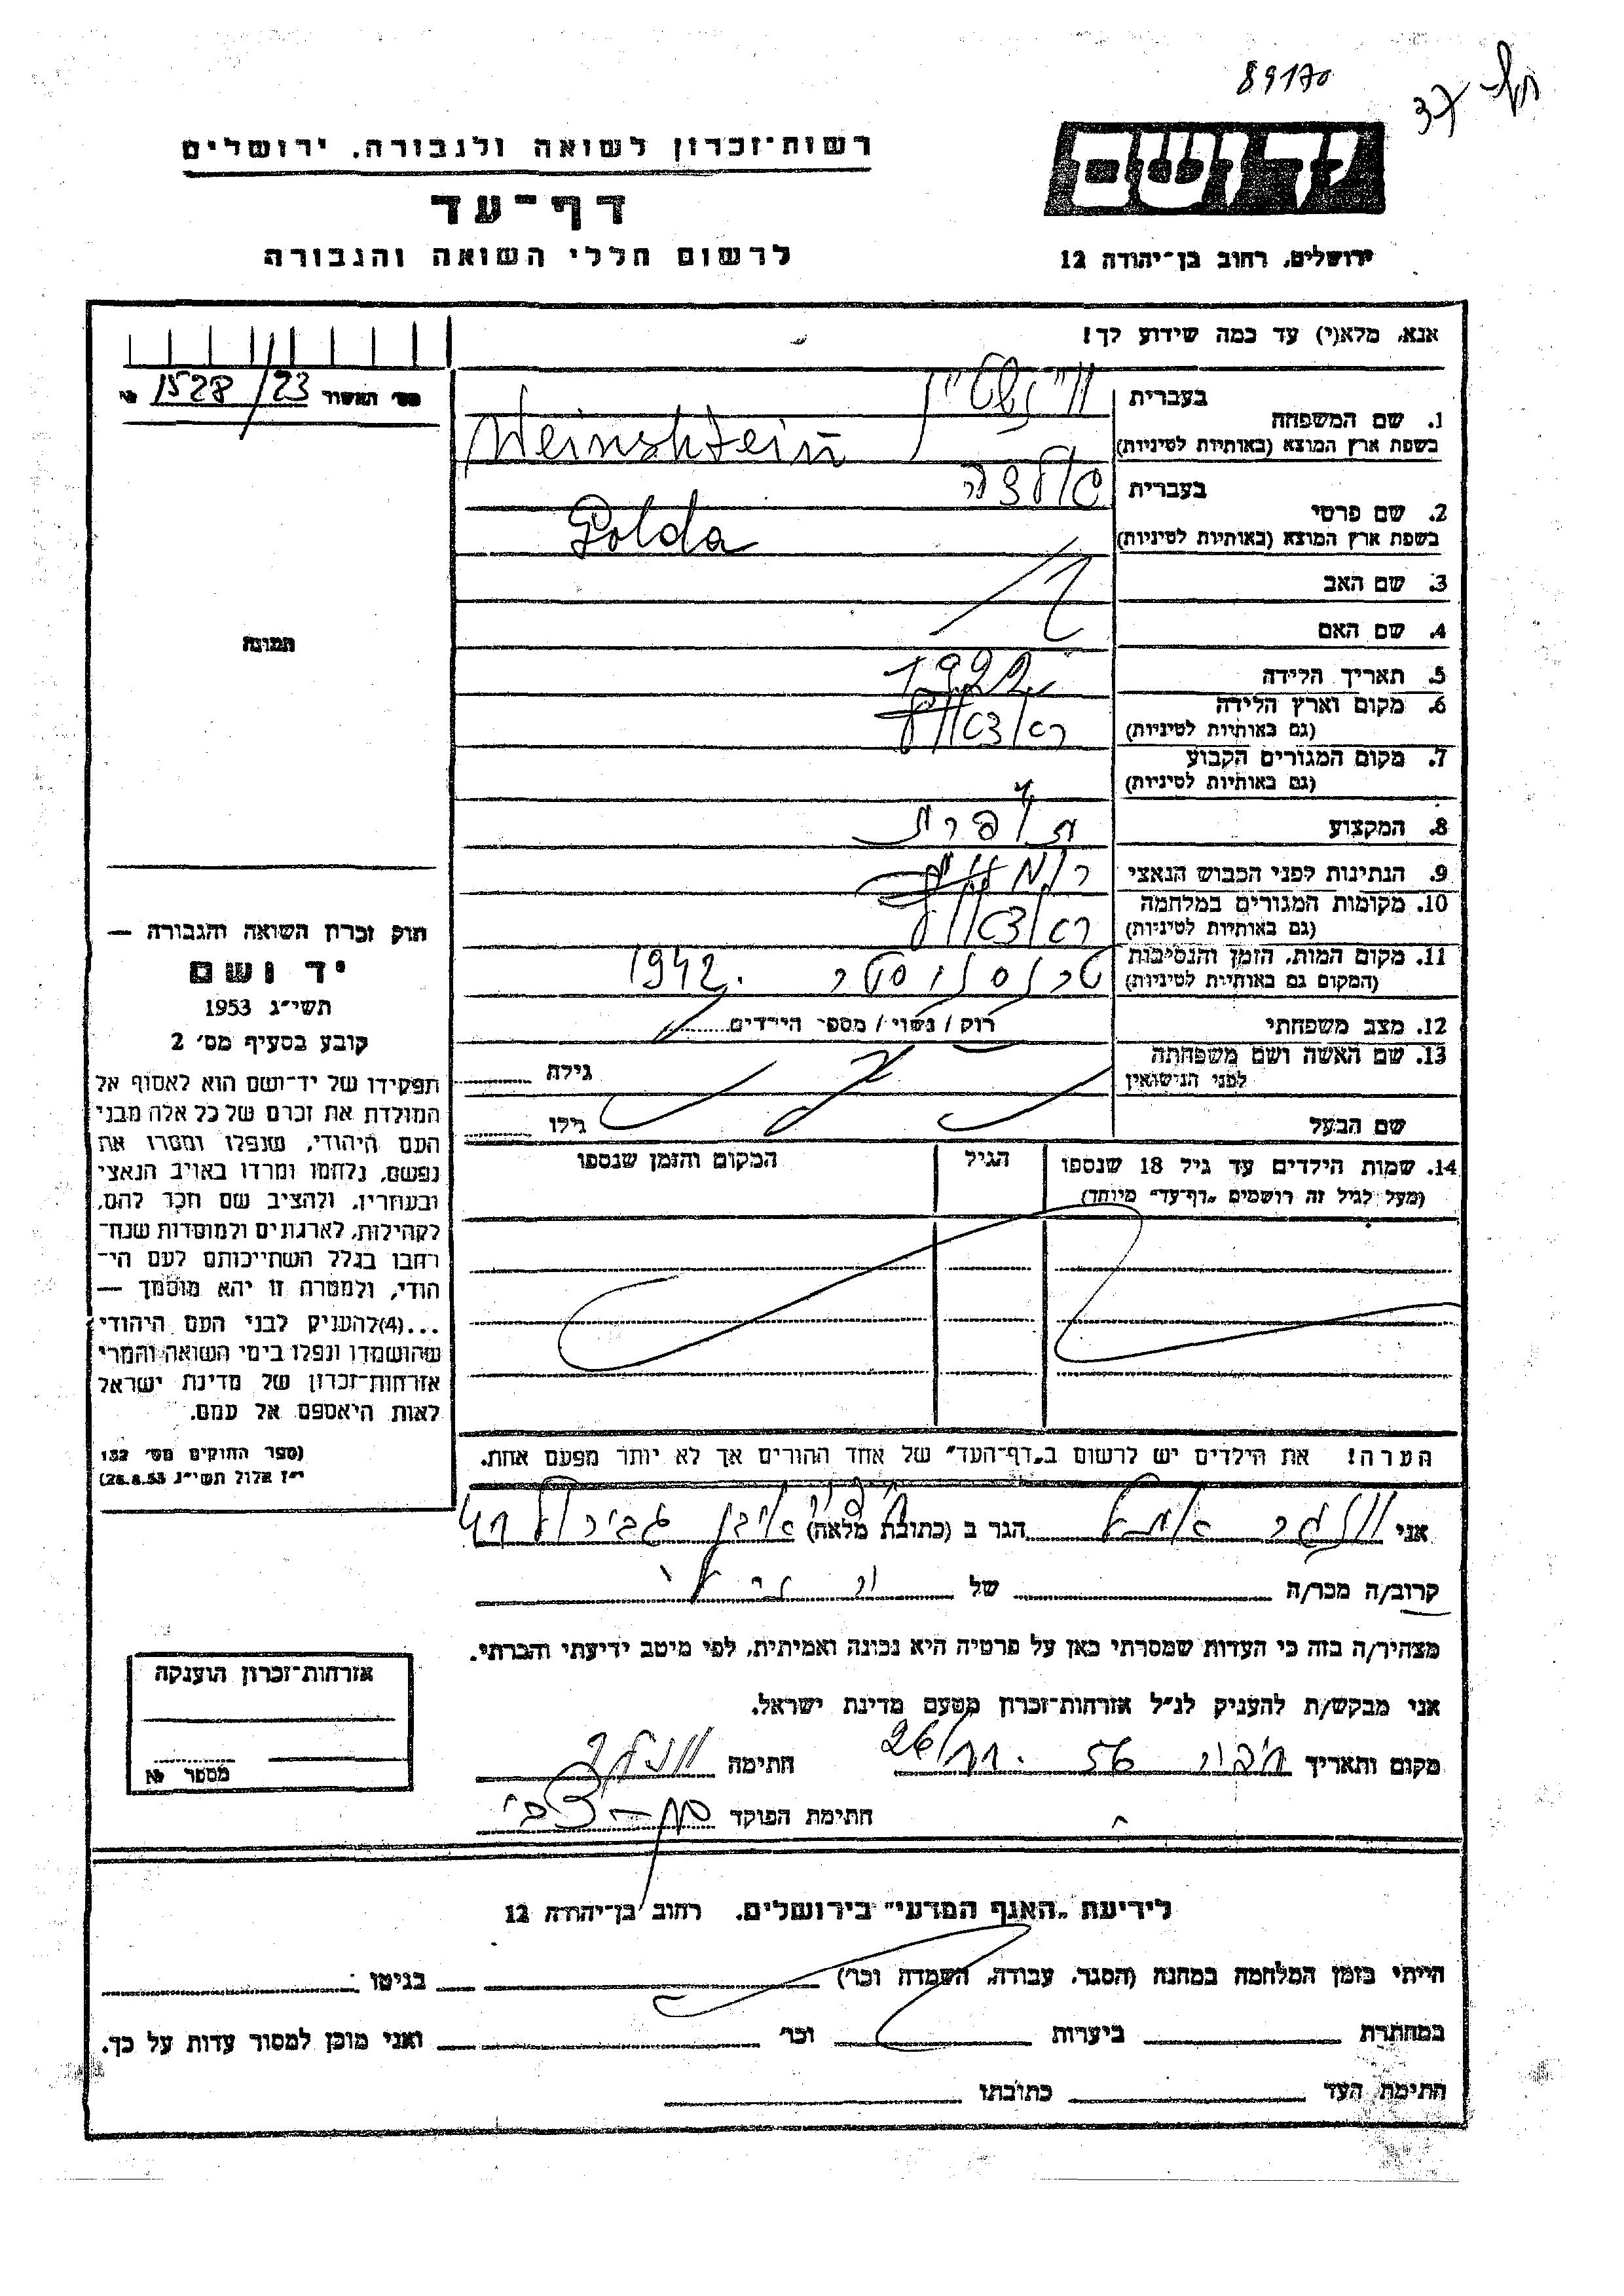 89170
רשות־זכרון לשואה ולגבורה. ירושלים
דף־עד
לרשום חללי השואה והגבורה
ידושם
ירושלים, רחוב בן־יהודה 12
אנא, מלא(י) עד כמה שידוע לך!
מס׳ האשור 1528/23 №
1. שם המשפחה
בעברית ווינשטיין
בשפת ארץ המוצא (באותיות לטיניות) Weinshtein
2. שם פרטי
בעברית גולדה
בשפת ארץ המוצא (באותיות לטיניות) Golda
3. שם האב
4. שם האם
5. תאריך הלידה 1922
6. מקום וארץ הלידה
(גם באותיות לטיניות)
7. מקום המגורים הקבוע
(גם באותיות לטיניות)
8. המקצוע תופרת
9. הנתינות לפני הכבוש הנאצי
10. מקומות המגורים במלחמה
(גם באותיות לטיניות)
11. מקום המות, הזמן והנסיבות 1942
(המקום גם באותיות לטיניות)
12. מצב משפחתי רוק / נשוי / מספר הילדים
13. שם האשה ושם משפחתה גילה
לפני הנישואין
שם הבעל גילו
14. שמות הילדים עד גיל 18 שנספו הגיל המקום והזמן שנספו
(מעל לגיל זה רושמים „דף־עד" מיוחד)
הערה! את הילדים יש לרשום ב„דף־העד" של אחד ההורים אך לא יותר מפעם אחת.
תמונה
חוק זכרון השואה והגבורה —
יד ושם
תשי״ג 1953
קובע בסעיף מס׳ 2
תפקידו של יד־ושם הוא לאסוף אל
המולדת את זכרם של כל אלה מבני
העם היהודי, שנפלו ומסרו את
נפשם, נלחמו ומרדו באויב הנאצי
ובעוזריו, ולהציב שם וזכר להם,
לקהילות, לארגונים ולמוסדות שנח־
רבו בגלל השתייכותם לעם הי־
הודי, ולמטרה זו יהא מוסמך —
...(4)להעניק לבני העם היהודי
שהושמדו ונפלו בימי השואה והמרי
אזרחות־זכרון של מדינת ישראל
לאות היאספם אל עמם.
(ספר החוקים מס׳ 132
י״ז אלול תשי״ג 28.8.53)
אני הגר ב (כתובת מלאה)
קרוב/ה מכר/ה של
מצהיר/ה בזה כי העדות שמסרתי כאן על פרטיה היא נכונה ואמיתית, לפי מיטב ידיעתי והכרתי.
אני מבקש/ת להעניק לנ״ל אזרחות־זכרון מטעם מדינת ישראל.
מקום ותאריך חתימה
חתימת הפוקד
אזרחות־זכרון הוענקה
מספר №
לידיעת „האגף המדעי" בירושלים, רחוב בן־יהודה 12
הייתי בזמן המלחמה במחנה (הסגר, עבודה, השמדה וכר׳) בגיטו
במחתרת ביערות וכר׳ ואני מוכן למסור עדות על כך.
חתימת העד כתובתו